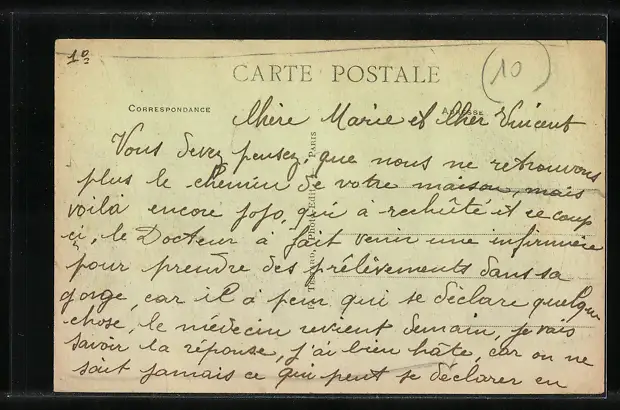 1º
10
CARTE POSTALE
CORRESPONDANCE
ADRESSE
Chère Marie et Cher Vincent
Vous devez pensez, que nous ne retrouvons
plus le chemin de votre maison, mais
voila encore jojo, qui à rechûté et ce coup
ci, le Docteur à fait venir une infirmière
pour prendre des prélèvements dans sa
gorge, car il à peur qui se déclare quelque
chose, le médecin revient demain, je vais
savoir la réponse, j'ai bien hâte, car on ne
sait jamais ce qui peut se déclarer en
Photo-Edit. PARIS